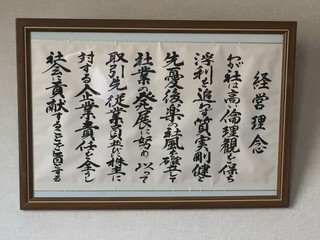 経営理念
わが社は高い倫理観を保ち
浮利を追わず質実剛健を
先憂後楽を社風を確立して
社業の発展に努め以って
取引先従業員並び株主に
対する企業責任を全うし
社会に貢献することを旨とする